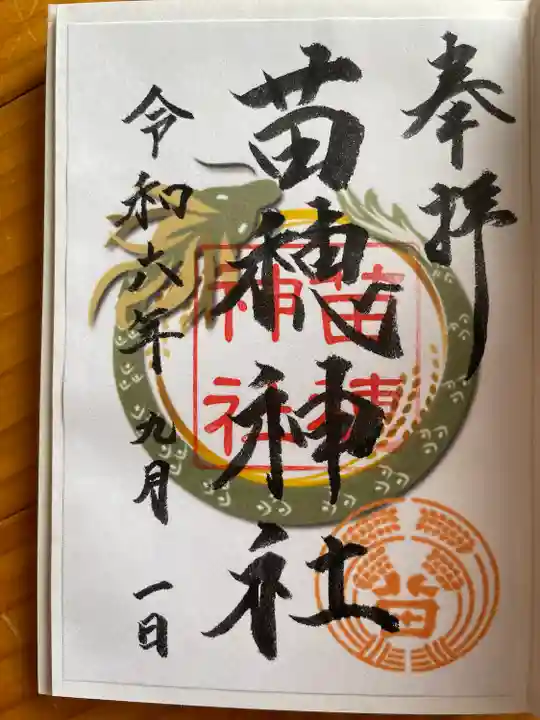 奉拝
苗穂神社
苗穂
神社
苗
令和六年九月一日